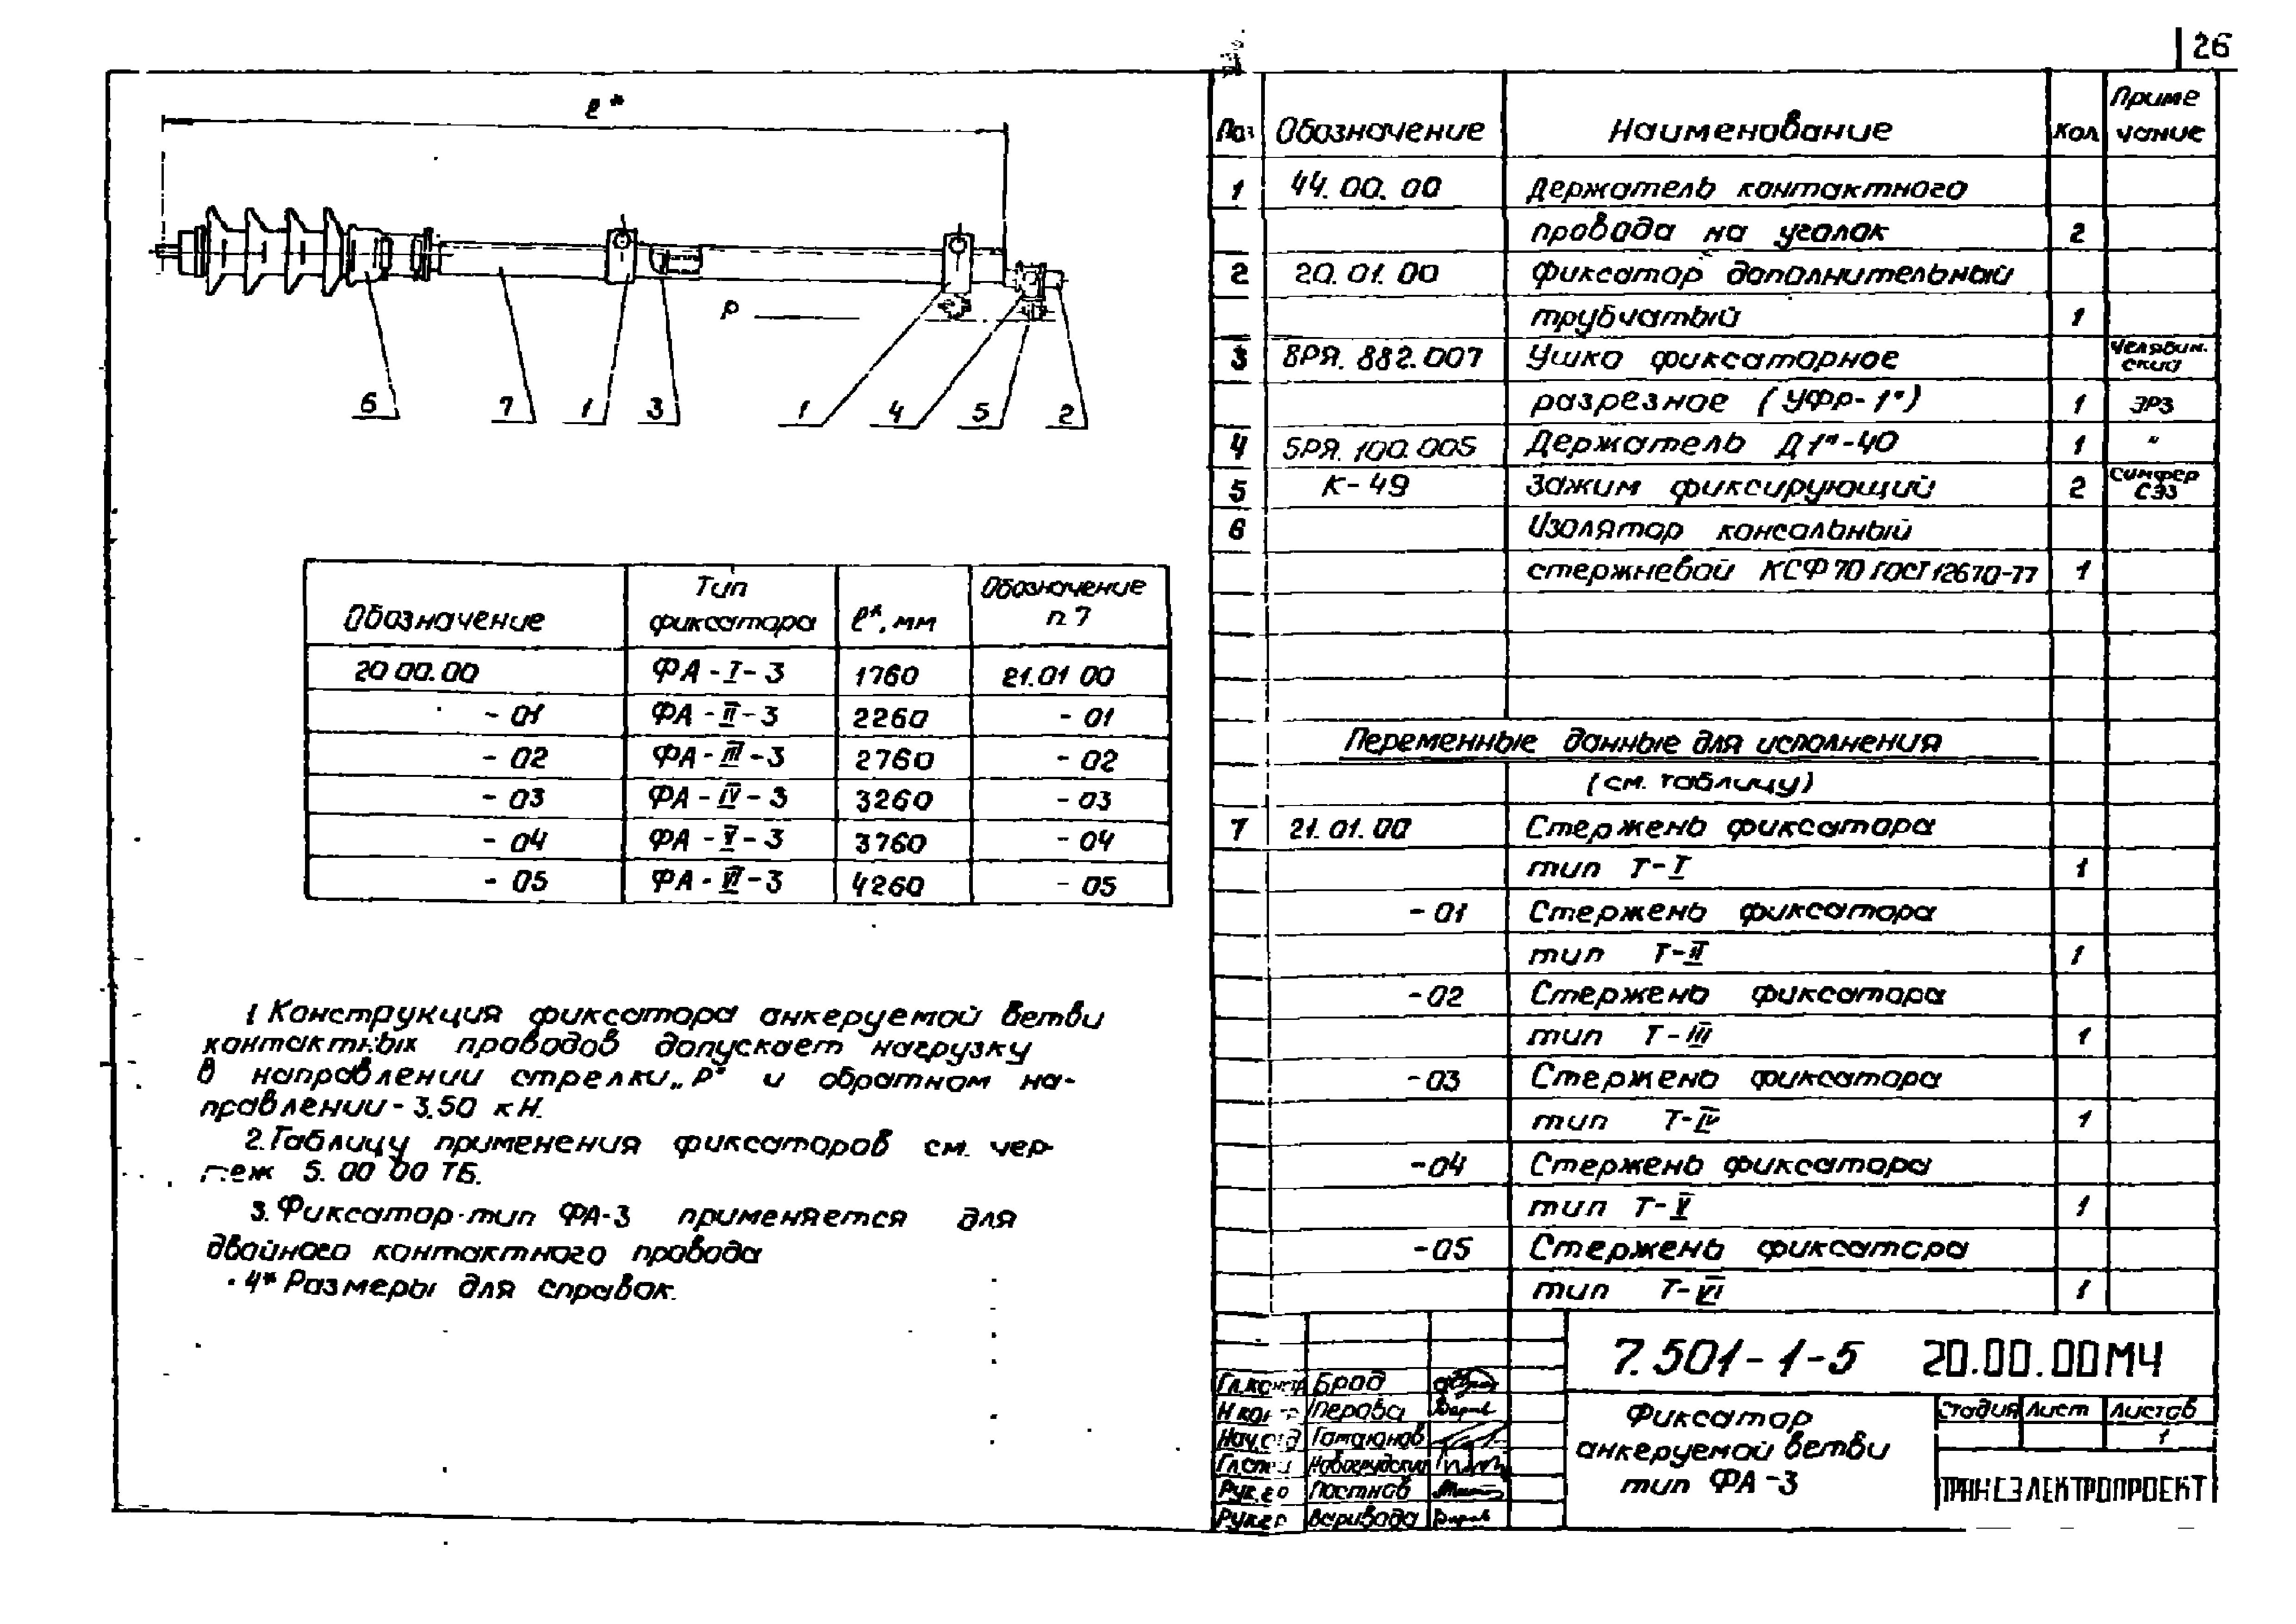 26
ℓ*
P
6 7 1 3 1 4 5 2
Обозначение
Тип
фиксатора
ℓ*, мм
Обозначение
п 7
20 00.00 ФА-I-3 1760 21.01 00
- 01 ФА-II-3 2260 - 01
- 02 ФА-III-3 2760 - 02
- 03 ФА-IV-3 3260 - 03
- 04 ФА-V-3 3760 - 04
- 05 ФА-VI-3 4260 - 05
1 Конструкция фиксатора анкеруемой ветви
контактных проводов допускает нагрузку
в направлении стрелки „P" и обратном на-
правлении - 3.50 кН.
2. Таблицу применения фиксаторов см. чер-
теж 5. 00 00 ТБ.
3. Фиксатор тип ФА-3 применяется для
двойного контактного провода
4* Размеры для справок.
Поз Обозначение Наименование Кол Приме
чание
1 44. 00. 00 Держатель контактного
провода на уголок 2
2 20. 01. 00 Фиксатор дополнительный
трубчатый 1
3 8РЯ. 882. 007 Ушко фиксаторное Челябин.
ский
разрезное (УФР-1") 1 ЭРЗ
4 5РЯ. 100. 005 Держатель Д1"-40 1 "
5 К-49 Зажим фиксирующий 2 Симфер
СЭЗ
6 Изолятор консольный
стержневой КСФ 70 ГОСТ 12670-77 1
Переменные данные для исполнения
(см. таблицу)
7 21. 01. 00 Стержень фиксатора
тип Т-I 1
- 01 Стержень фиксатора
тип Т-II 1
- 02 Стержень фиксатора
тип Т-III 1
- 03 Стержень фиксатора
тип Т-IV 1
- 04 Стержень фиксатора
тип Т-V 1
- 05 Стержень фиксатора
тип Т-VI 1
7. 501-1-5 20.00.00МЧ
Гл.констр Брод
Н конт Перова
Нач.отд Гамаюнов
Новогрудский
Рук.гр Постнов
Рук.гр Варивода
Фиксатор
анкеруемой ветви
тип ФА-3
Стадия Лист Листов
1
ТРАНСЭЛЕКТРОПРОЕКТ